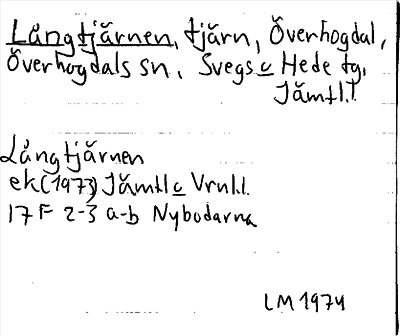 Långtjärnen, tjärn, Överhogdal,
Överhogdals sn, Svegs o Hede tg,
Jämtl.l.
Långtjärnen
ek(1973) Jämtl o Vrnl.l.
17 F 2-3 a-b Nybodarna
LM 1974